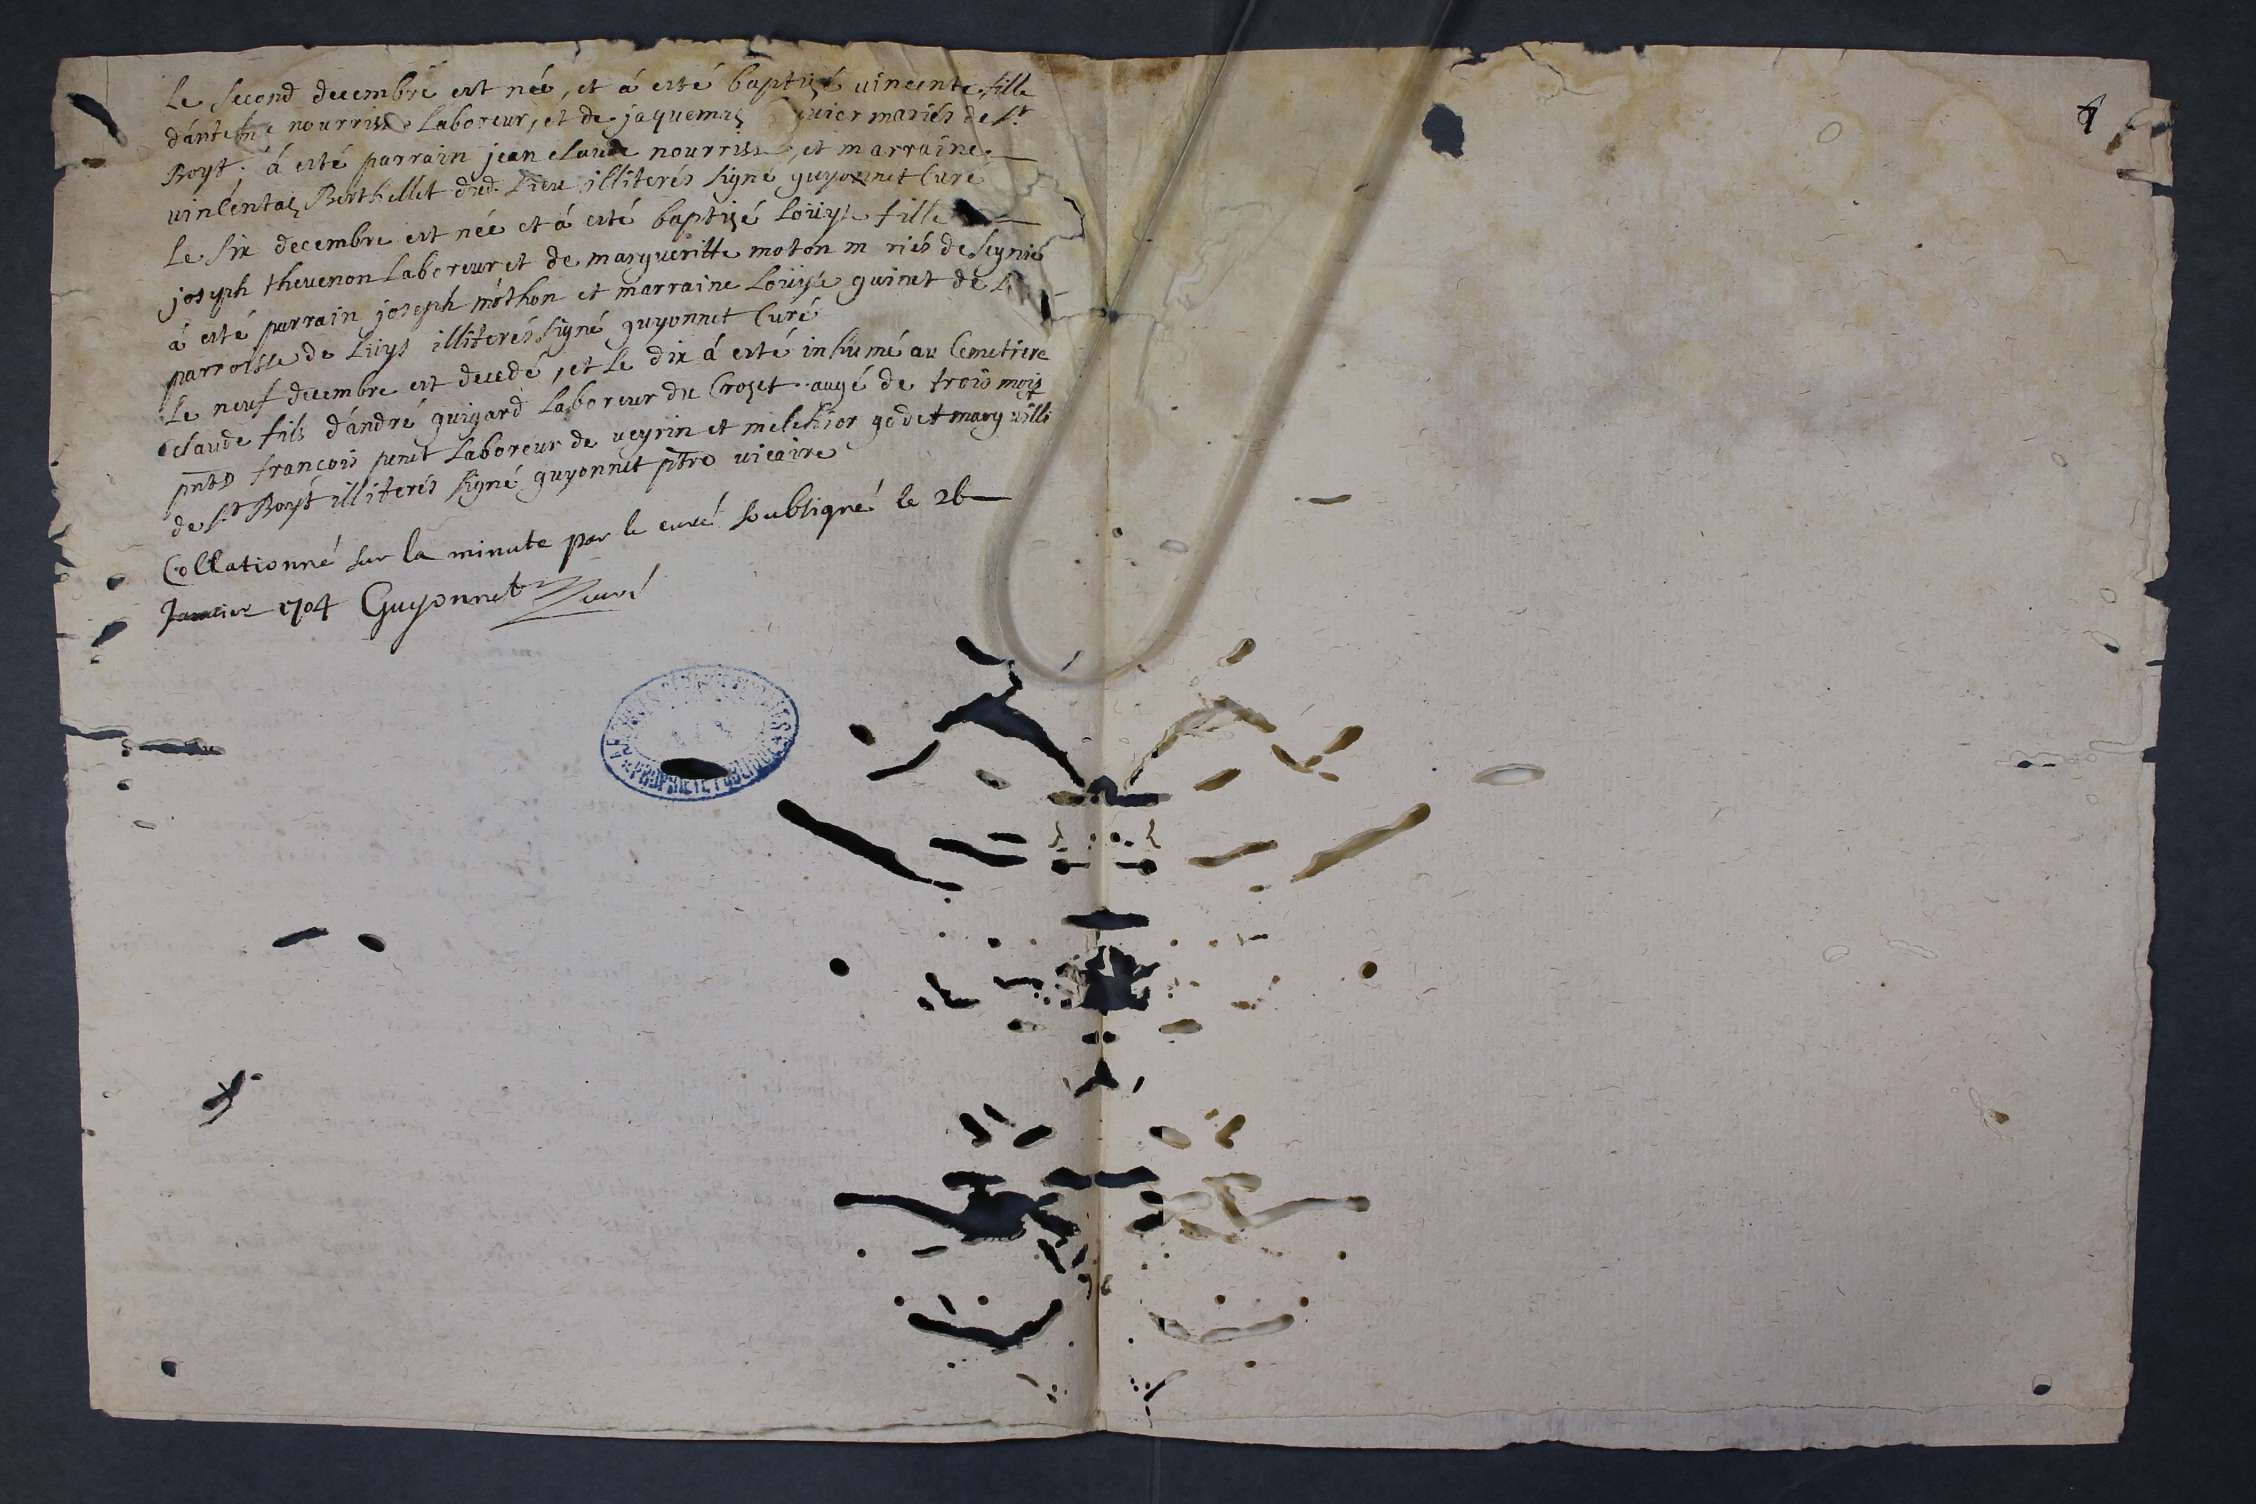 Le second decembre est née, et á esté baptizé vincente fille
dántel nourriss Laboreur, et de jaquemaz uier mariés de St
Boys. á esté parrain jean claude nourriss, et marraine
vincentaz Berthellet dud. Lieu illiterés signé guyonnet Curé
Le six decembre est née et á esté baptizé Loüyse fille
joseph thevenon Laboreur et de margueritte moton m riés de seynie
á esté parrain joseph mothon et marraine Loüyse guinet de
parroisse de Luys illiterés signé guyonnet Curé
Le neuf decembre est decedé, et Le dix á esté inhumé au Cemetiere
claude fils dándré guigard Laboreur du Crozet augé de trois mois
pnts françois penet Laboreur de veyrin et melchior godet
de St Boys illiterés signé guyonnet ptre vicaire
Collationné sur la minute par le curé soubsigné le 26
Janvier 1704 Guyonnet curé
PROPRIETE PUBLIQUE